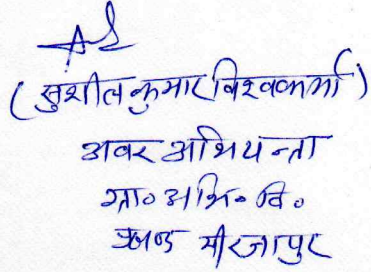 (सुशील कुमार विश्वकर्मा)
अवर अभियन्ता
ग्रा० अभि० वि०
खण्ड मीरजापुर